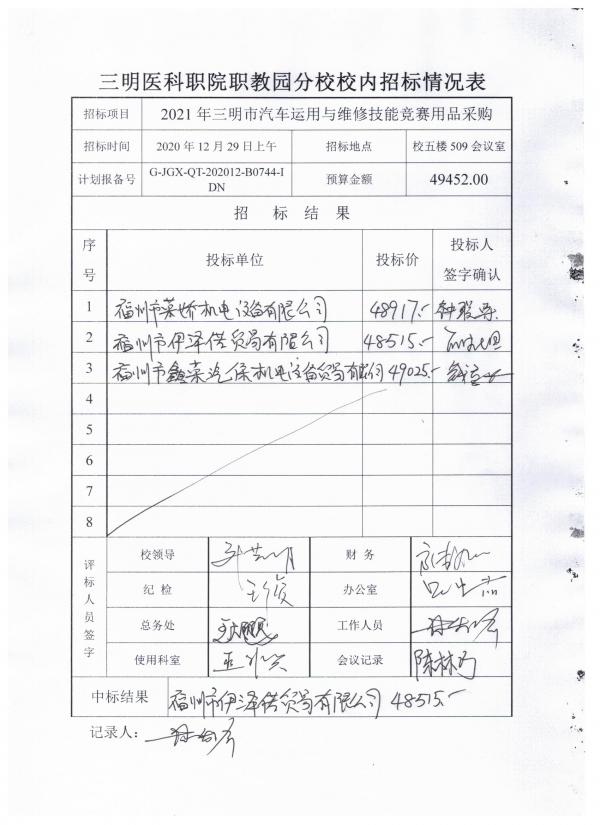 三明医科职院职教园分校校内招标情况表
招标项目 2021 年三明市汽车运用与维修技能竞赛用品采购
招标时间 2020 年 12 月 29 日上午 招标地点 校五楼 509 会议室
计划报备号 G-JGX-QT-202012-B0744-IDN 预算金额 49452.00
招 标 结 果
序号 投标单位 投标价 投标人签字确认
1 福州市莱娇机电设备有限公司 48917.-
2 福州市伊泽供贸易有限公司 48515.-
3 福州市鑫莱汽保机电设备贸易有限公司 49025.-
4
5
6
7
8
评标人员签字
校领导 财 务
纪 检 办公室
总务处 工作人员
使用科室 会议记录
中标结果 福州市伊泽供贸易有限公司 48515.-
记录人：